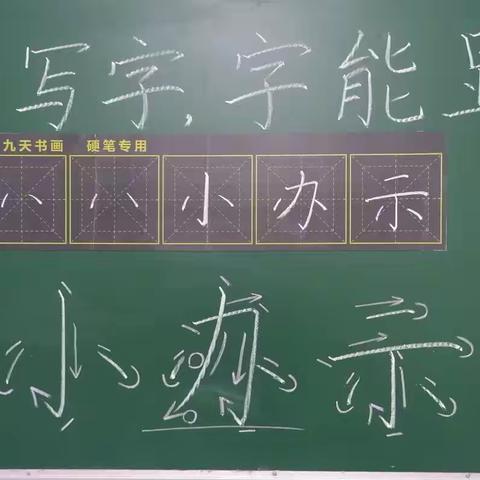 写字,字能
九天书画 硬笔专用
八 八 小 办 示
小 办 示